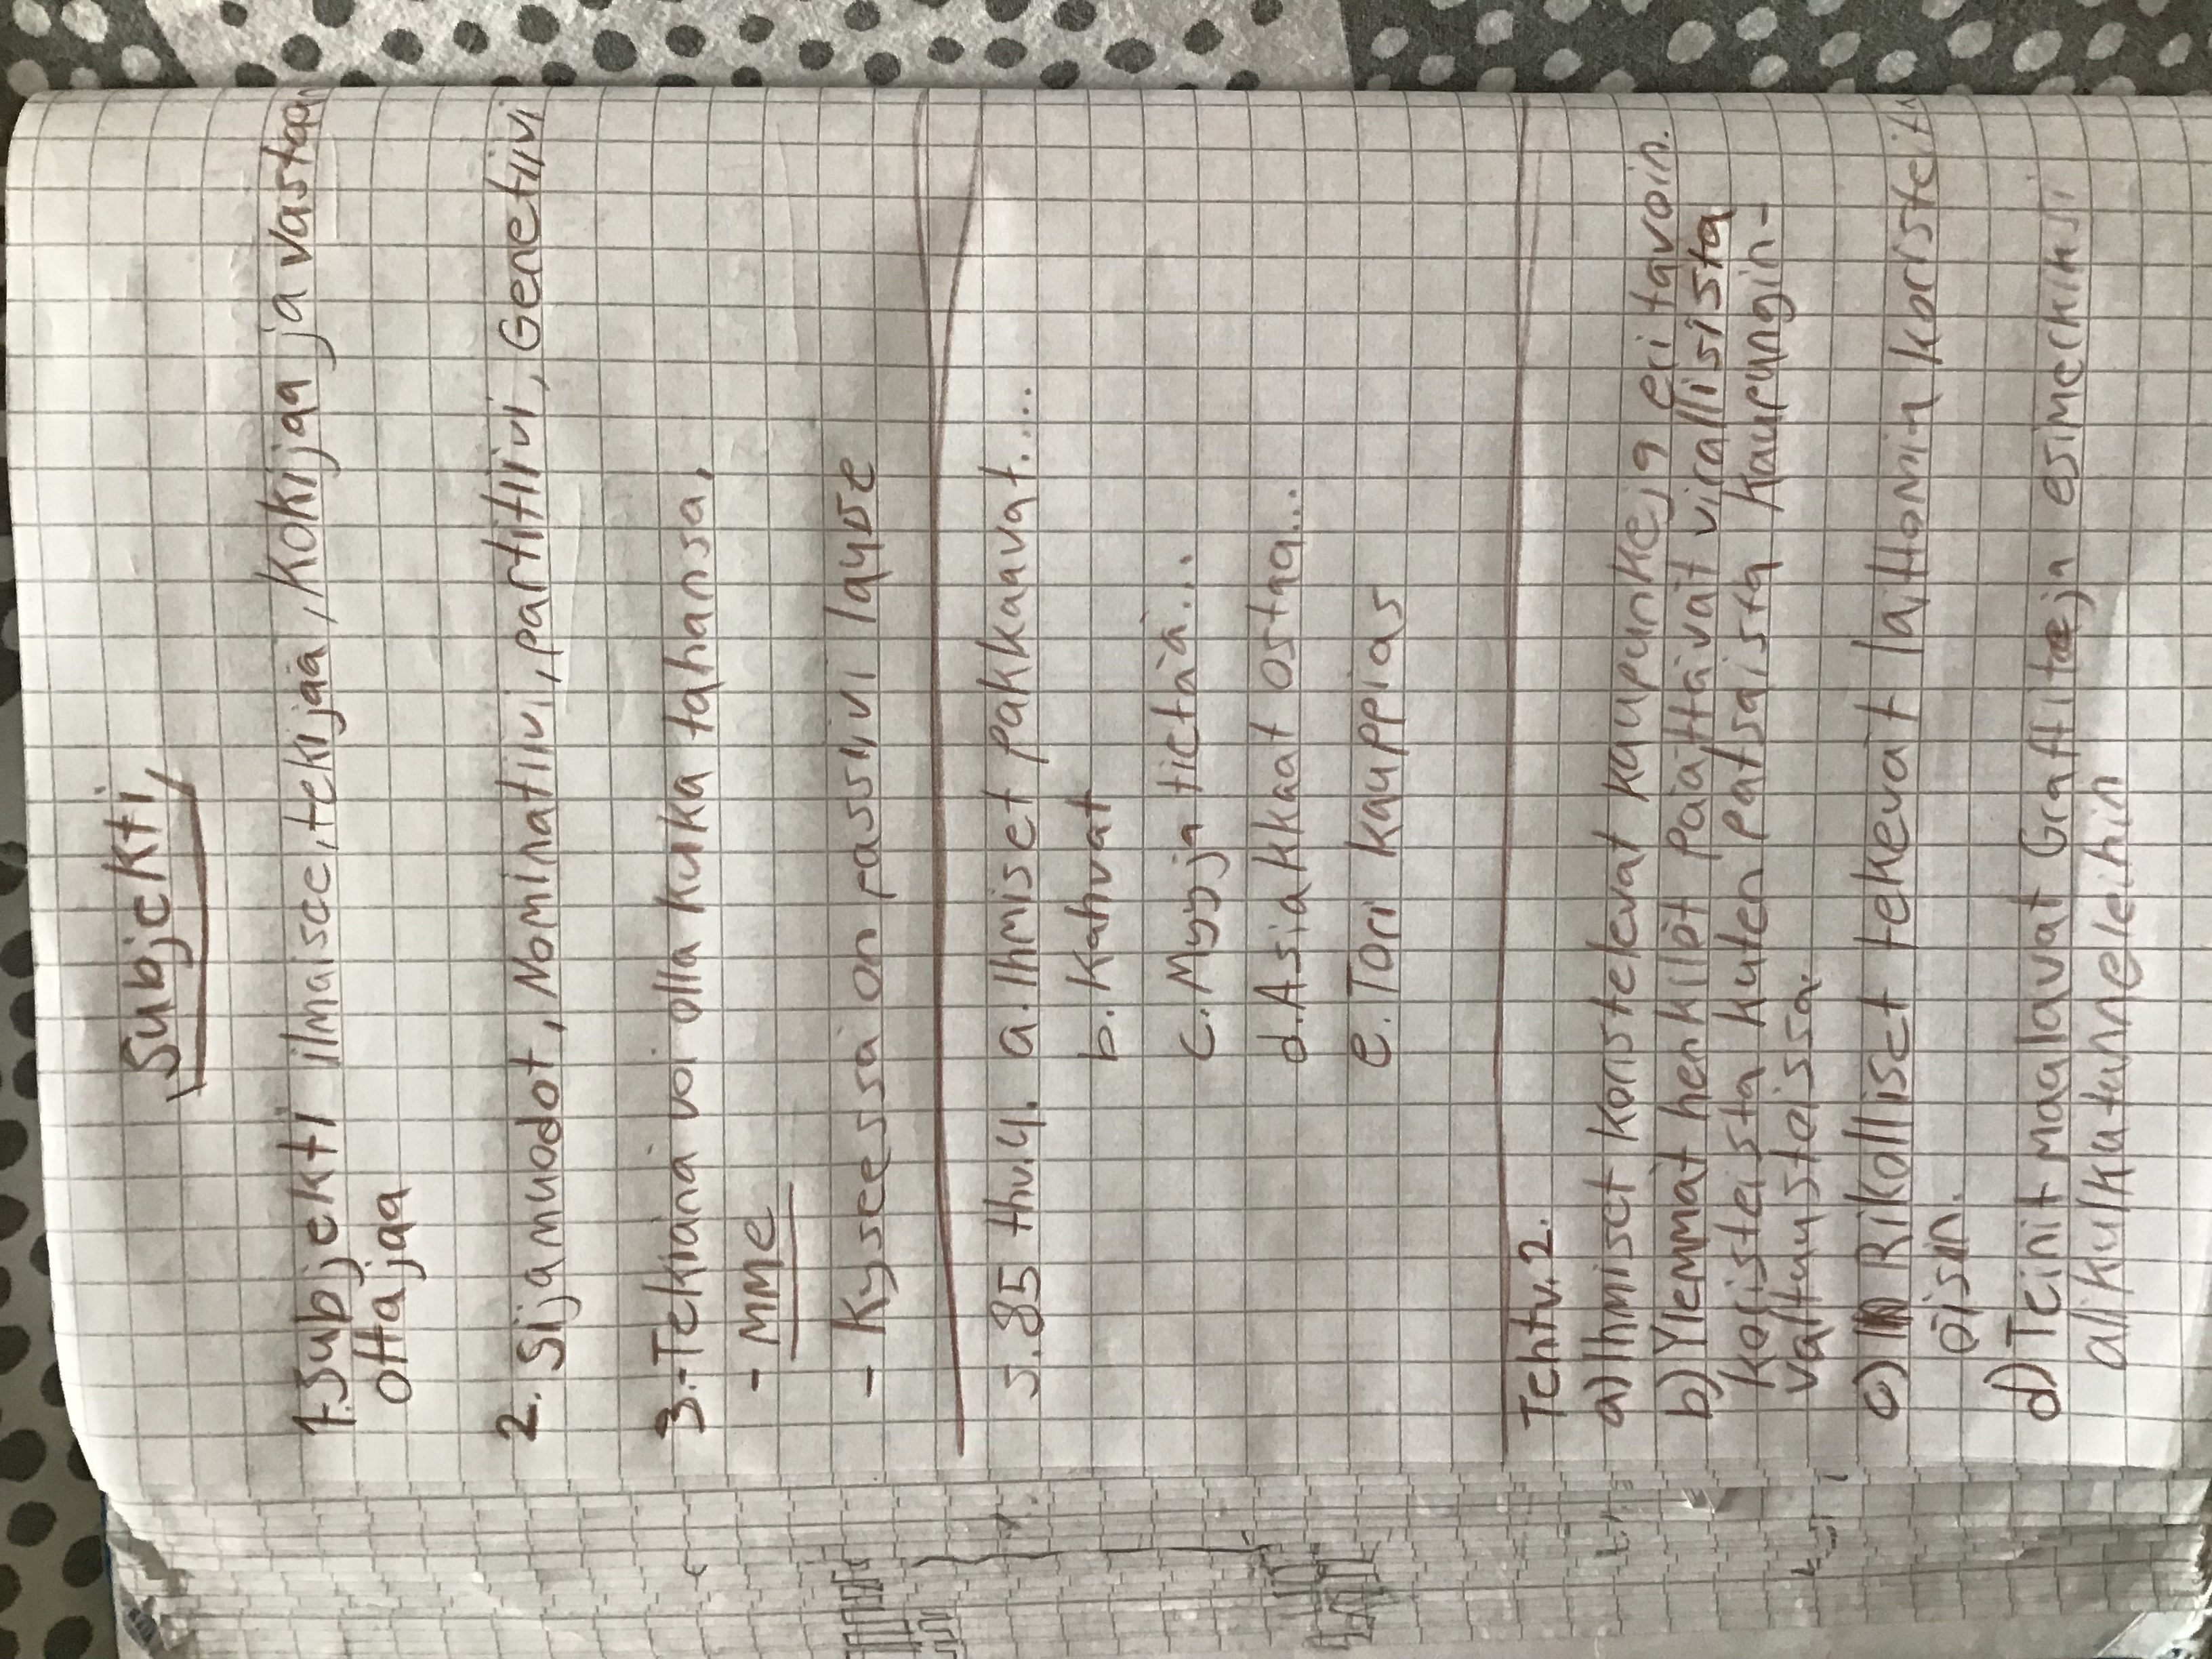 Subjekti
1. Subjekti ilmaisee, tekijää, Kokijaa ja vastaan
ottajaa
2. Sijamuodot, Nominatiivi, partitiivi, Genetiivi
3. -Tekiänä voi olla kuka tahansa,
- MME
- Kyseessä on passiivi lause
s.85 thv.4. a. Ihmiset pakkaavat....
b. Kahvat
c. Myyjä tietää...
d. Asiakkaat ostaa...
e. Tori kauppias
Tehtv.2.
a) Ihmiset koristelevat kaupunkeja eri tavoin.
b) Ylemmät henkilöt päättävät virallisista
koristeista kuten patsaista kaupungin-
valtuusteissa.
c) Rikolliset tekevät laittomin koristeit
öisin.
d) Teinit maalavat Graffiteja esimerkiksi
alikulkutunneleihin